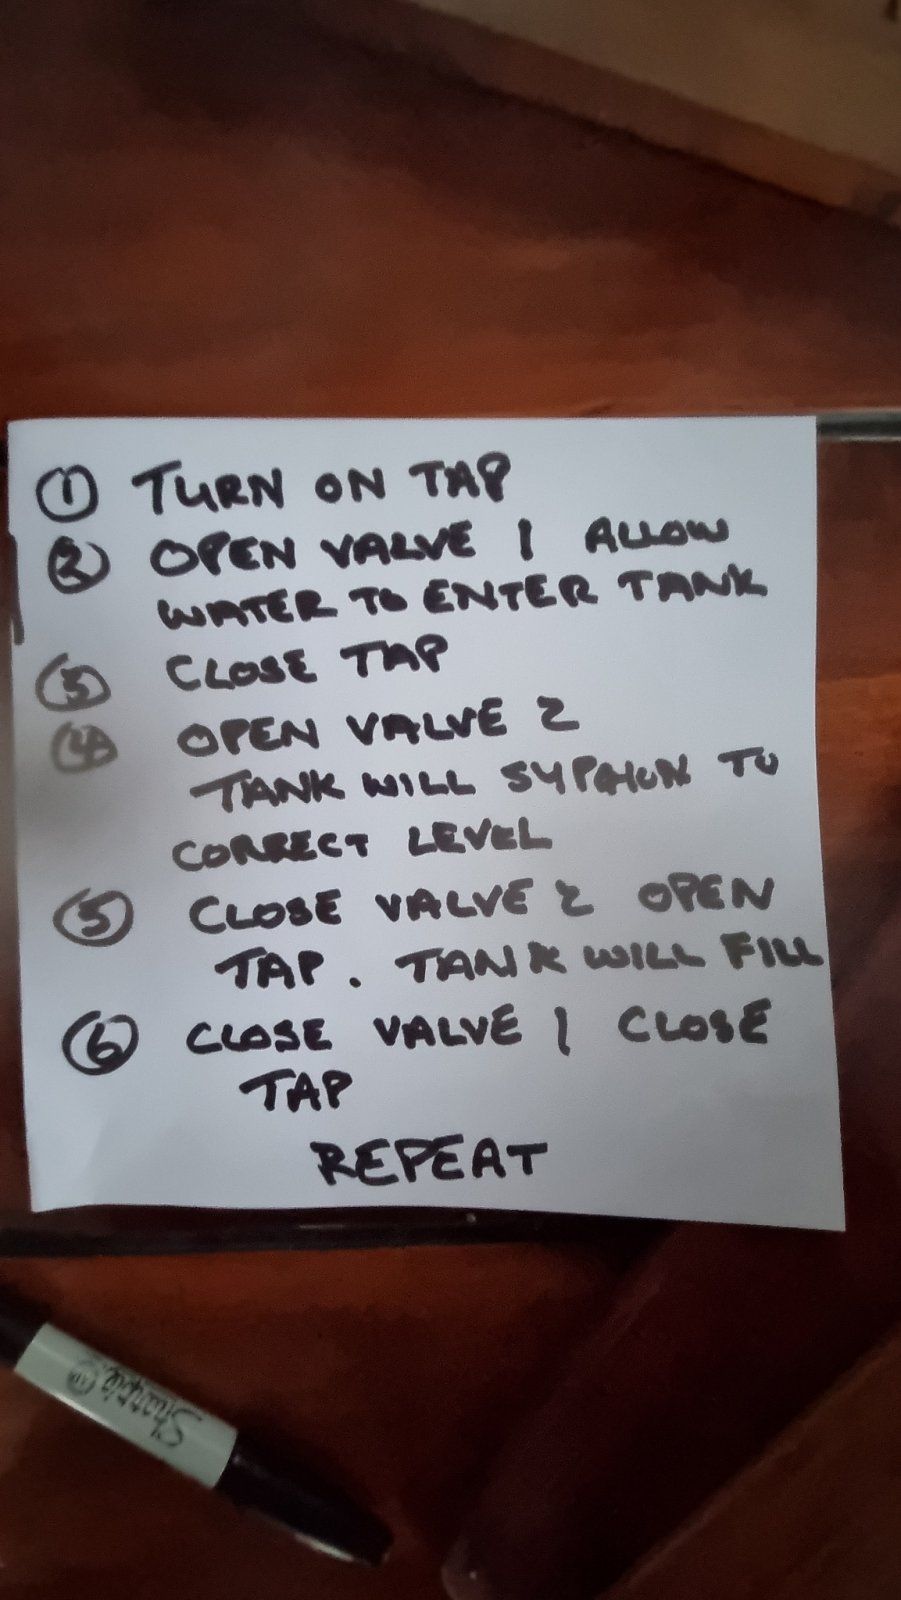 ① TURN ON TAP
② OPEN VALVE 1 ALLOW
WATER TO ENTER TANK
③ CLOSE TAP
④ OPEN VALVE 2
TANK WILL SYPHON TO
CORRECT LEVEL
⑤ CLOSE VALVE 2 OPEN
TAP. TANK WILL FILL
⑥ CLOSE VALVE 1 CLOSE
TAP
REPEAT
Sharpie